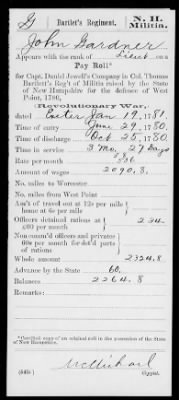 G Bartlet's Regiment. N. H. Militia.
John Gardner
Appears with the rank of Lieut on a
Pay Roll*
for Capt. Daniel Jewell's Company in Col. Thomas
Bartlet's Reg't of Militia raised by the State
of New Hampshire for the defence of West
Point, 1780,
(Revolutionary War,)
dated Exeter Jan 19, 1781.
Time of entry June 29, 1780.
Time of discharge Oct 25, 1780.
Time in service 3 Mo. 27 Days
Rate per month
Amount of wages 2090.8.
No. miles to Worcester
No. miles from West Point
Am't of travel out at 12s per mile
home at 6s per mile
Officers detained rations at
£60 per month 234.
Non comm'd officers and privates
60s per month for det'd parts
of rations
Whole amount 2324.8
Advance by the State 60.
Balance 2264.8
Remarks:
*Certified copy of an original roll in the possession of the State
of New Hampshire.
Copyist.